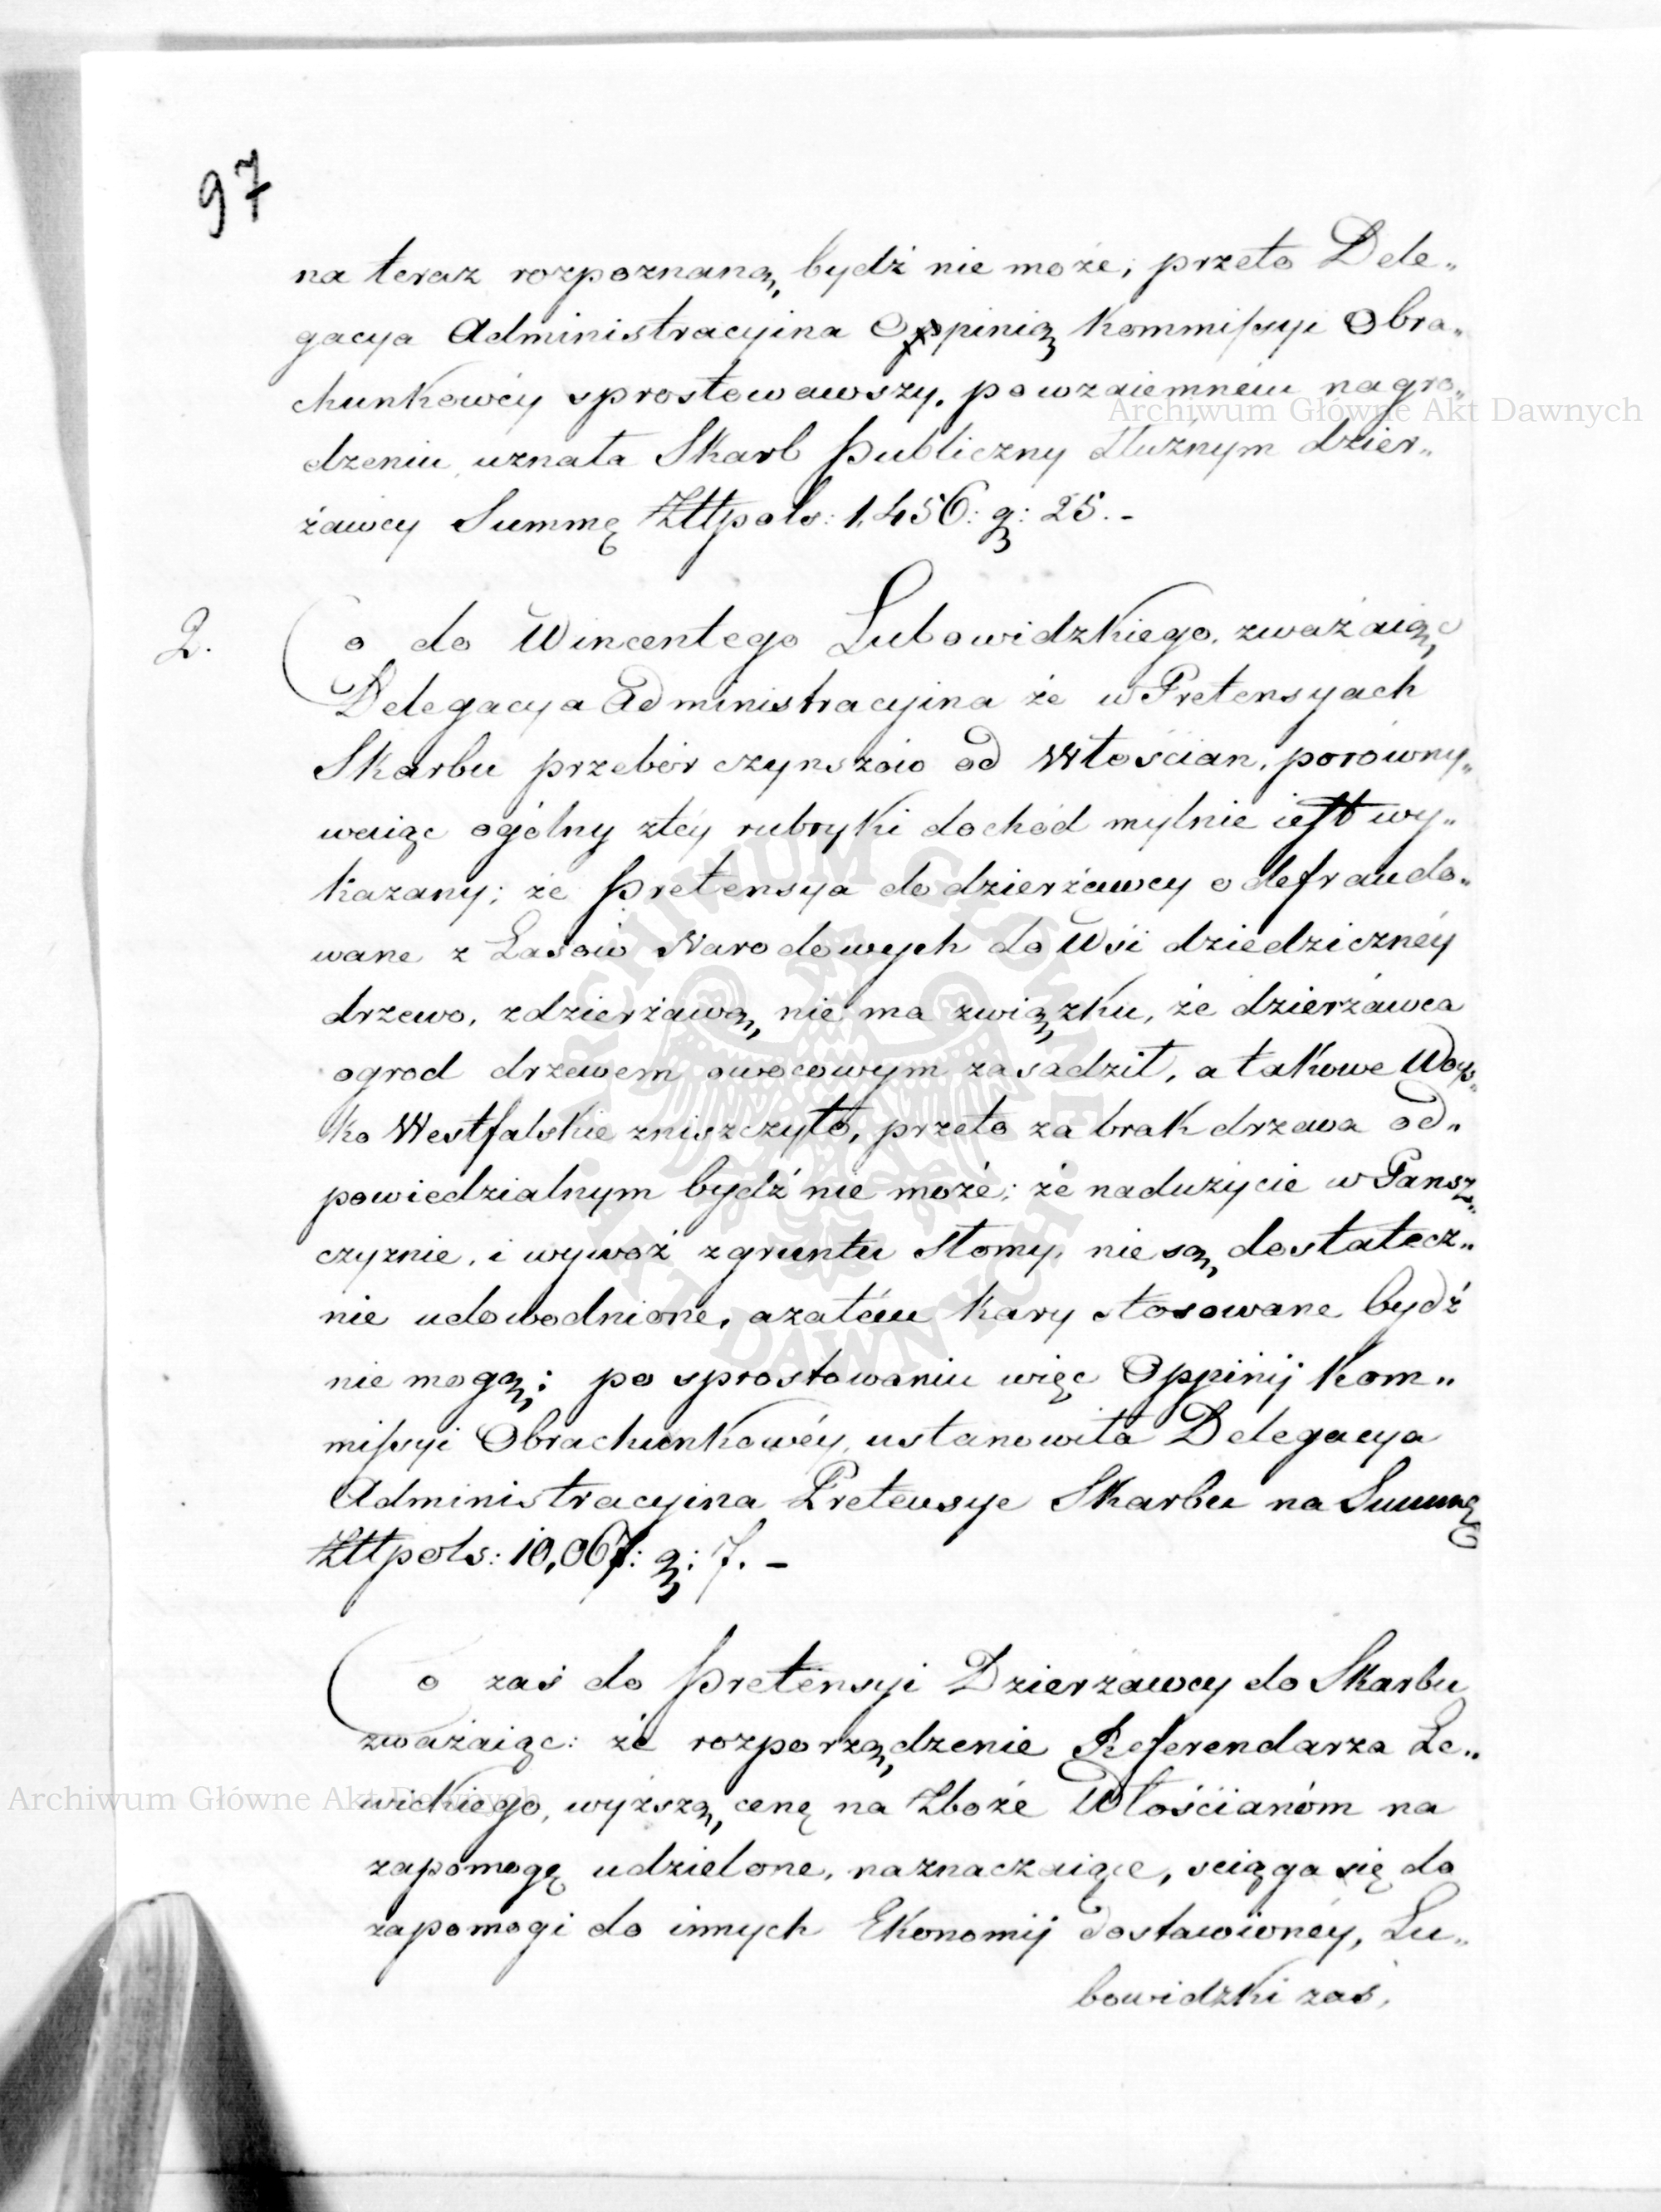 97
na teraz rozpoznaną, bydź nie może; przeto Dele„
gacya Administracyina Oppinią Kommissyi Obra„
chunkowéy sprostowawszy, po wzaiemném nagro„
dzeniu, uznała Skarb Publiczny dłużnym dzier„
żawcy Summę Złłpols: 1,456: g: 25.-
2. Co do Wincentego Lubowidzkiego, zważaiąc
Delegacya Administracyina że w Pretensyach
Skarbu przebór czynszów od Włościan, porówny„
waiąc ogólny z téy rubryki dochód mylnie iest wy„
kazany; że Pretensya do dzierżawcy o defraudo„
wane z Lasów Narodowych do Wsi dziedzicznéy
drzewo, z dzierżawą, nie ma związku, że dzierżawca
ogrod drzewem owocowym zasadził, a takowe Woys„
ko Westfalskie zniszczyło, przeto za brak drzewa od„
powiedzialnym bydź nie może; że nadużycie w Pansz„
czyznie, i wywoź z gruntu słomy, nie są, dostatecz„
nie udowodnione, a zatém kary stosowane bydź
nie mogą; po sprostowaniu więc Oppinij Kom„
missyi Obrachunkowéy, ustanowiła Delegacya
Administracyina Pretensye Skarbu na Summę
Złłpols: 10,067: g: 7. -
Co zaś do Pretensyi Dzierżawcy do Skarbu
zważaiąc: że rozporządzenie Referendarza Le„
wickiego, wyższą, cenę na Zboże Włościanóm na
zapomogę udzielone, naznaczaiące, sciąga się do
zapomogi do innych Ekonomij dostawionéy, Lu„
bowidzki zaś,
Archiwum Główne Akt Dawnych
Archiwum Główne Akt Dawnych
ARCHIWUM GŁÓWNE · AKT DAWNYCH ·